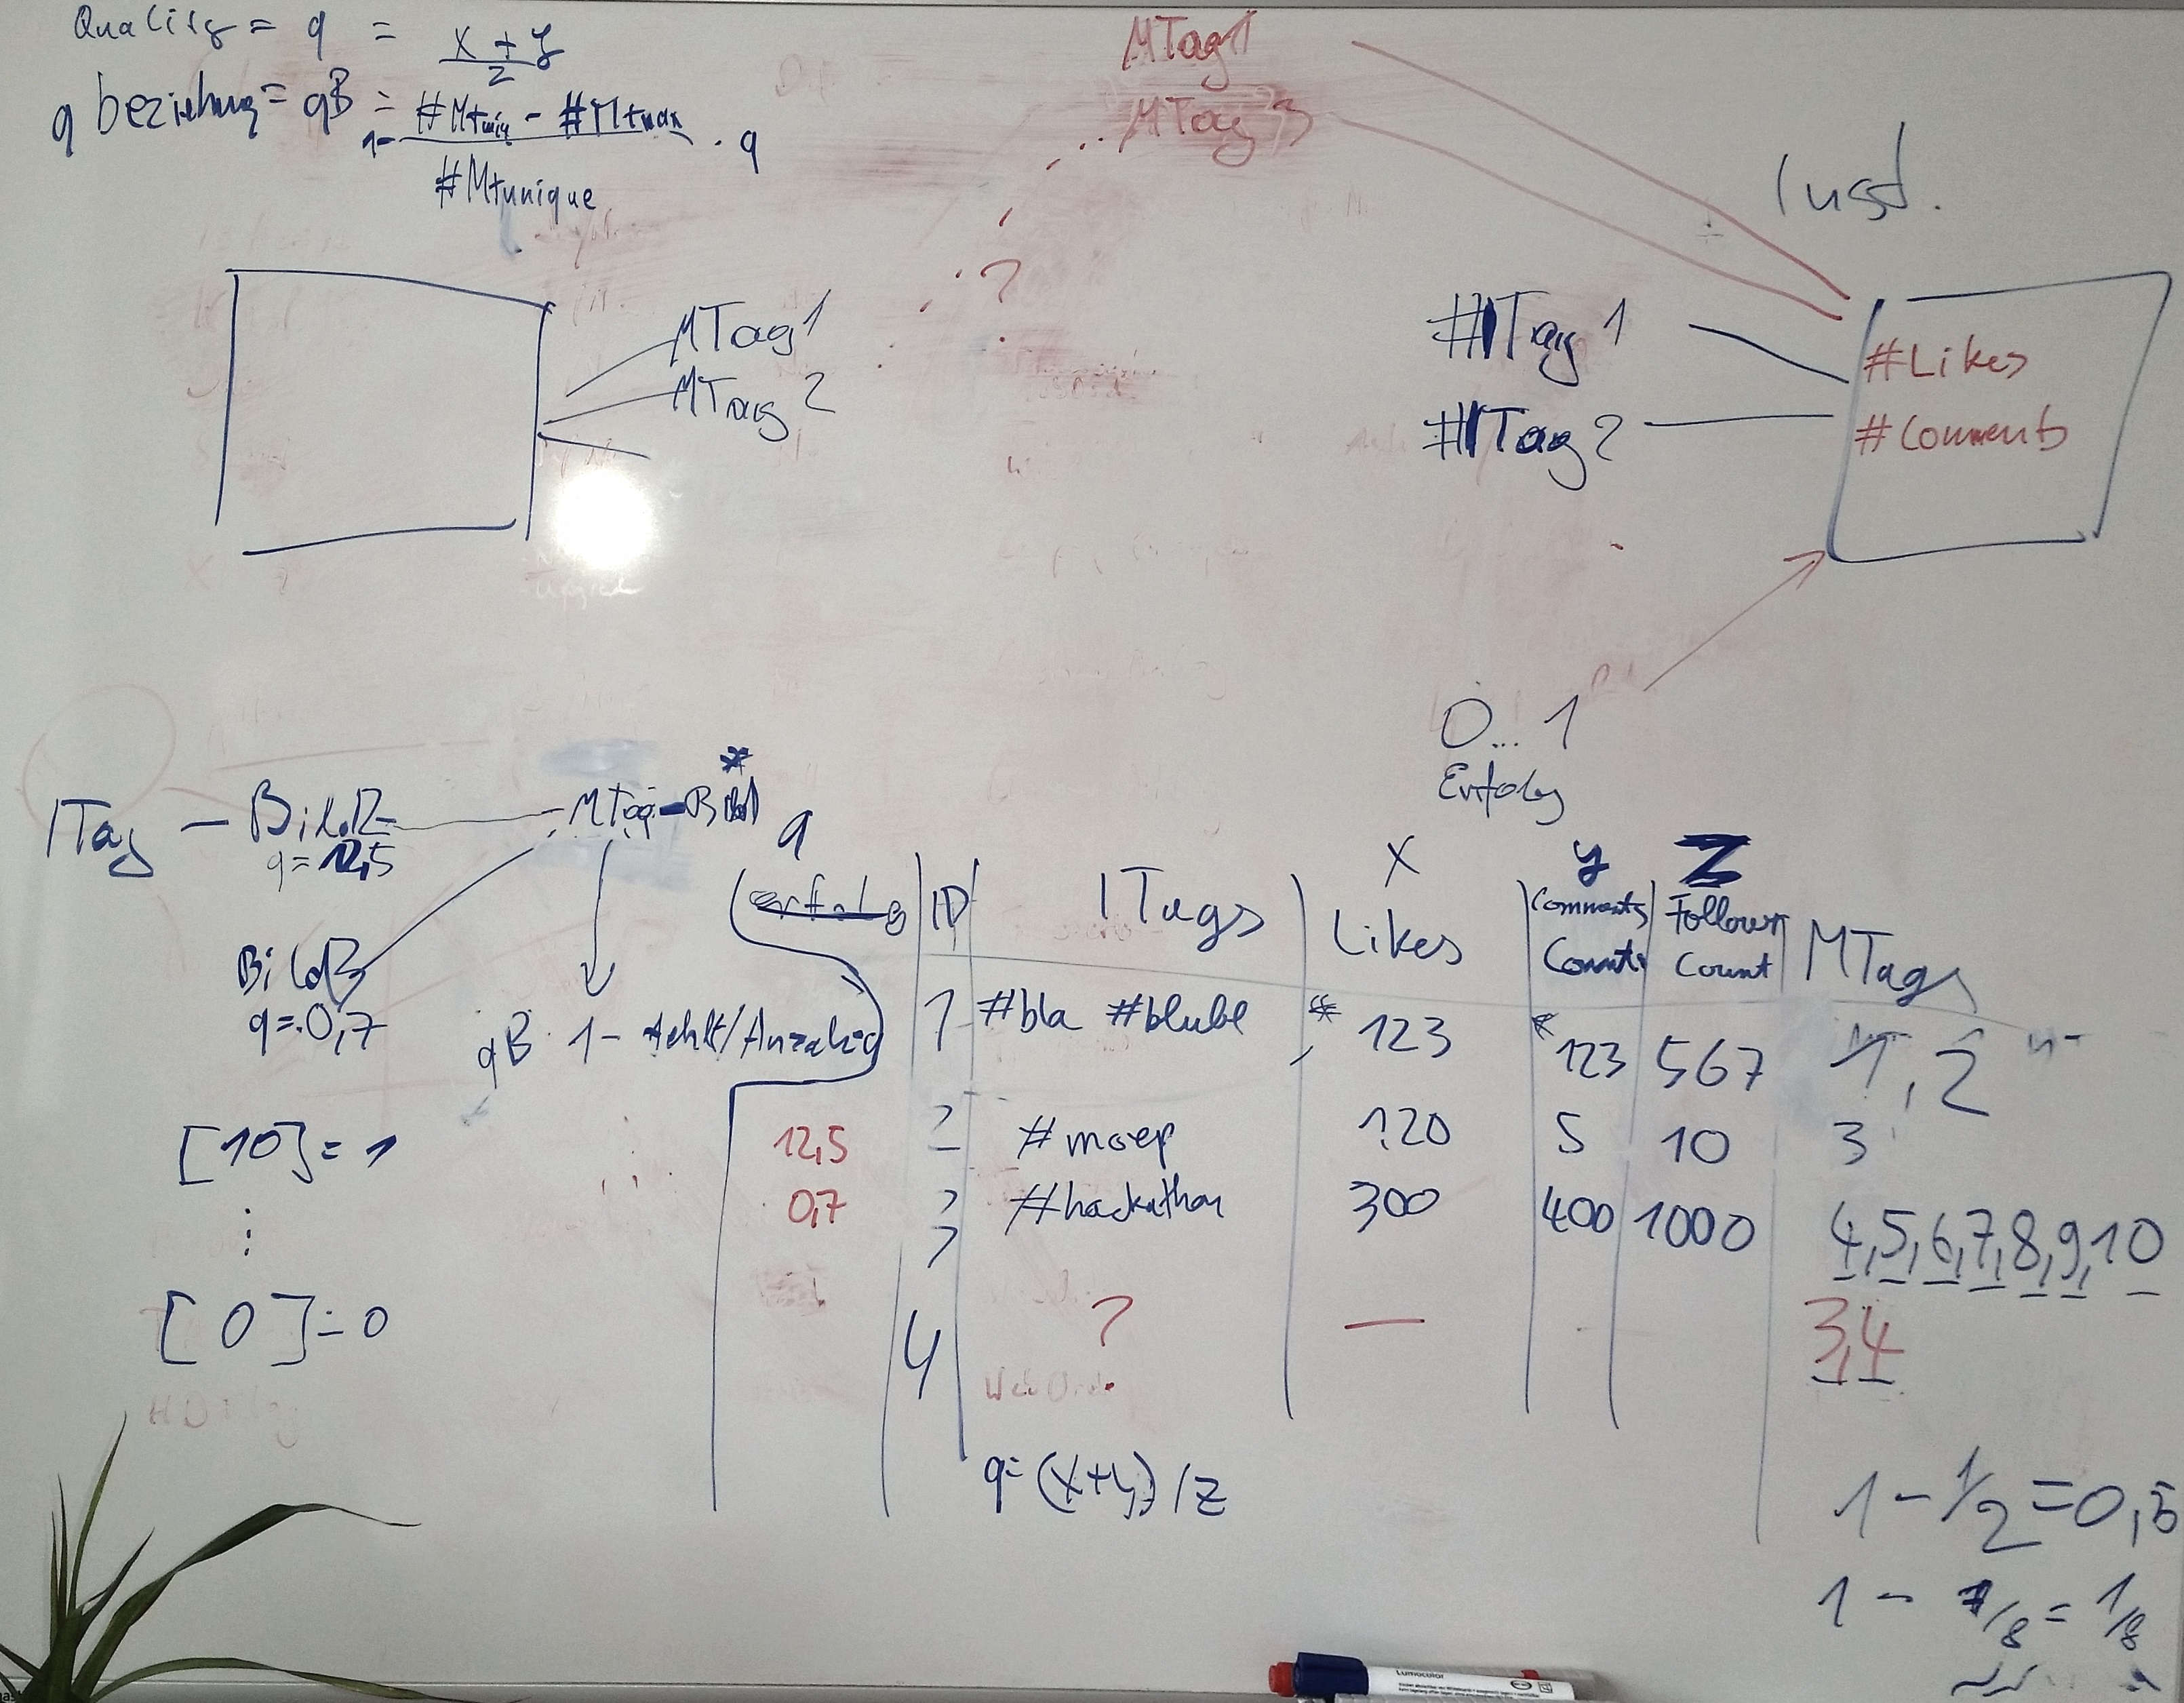 Quality = q = x + y / z
q beziehung = qB = 1- #Mtmin - #Mtmax / #Mtunique · q
MTag1
MTag 3
Inst.
?
MTag1
MTag 2
#ITag 1
#ITag 2
#Likes
#Comments
0...1
Erfolg
ITag – Bild2 – MTag-Bild *
q = 12,5
Bild3
q = 0,7
qB 1 - fehlt/Anzahl · q
[10] = 1
⋮
[0] = 0
q X y Z
erfolg ID ITags Likes Comments Count Follower Count MTags
1 #bla #blubb * 123 * 123 567 1, 2
12,5 2 #moep 120 5 10 3
0,7 3 #hackathon 300 400 1000 4,5,6,7,8,9,10
4 ? — 3,4
q = (x+y) / z
1 - 1/2 = 0,5
1 - 7/8 = 1/8
Lumocolor